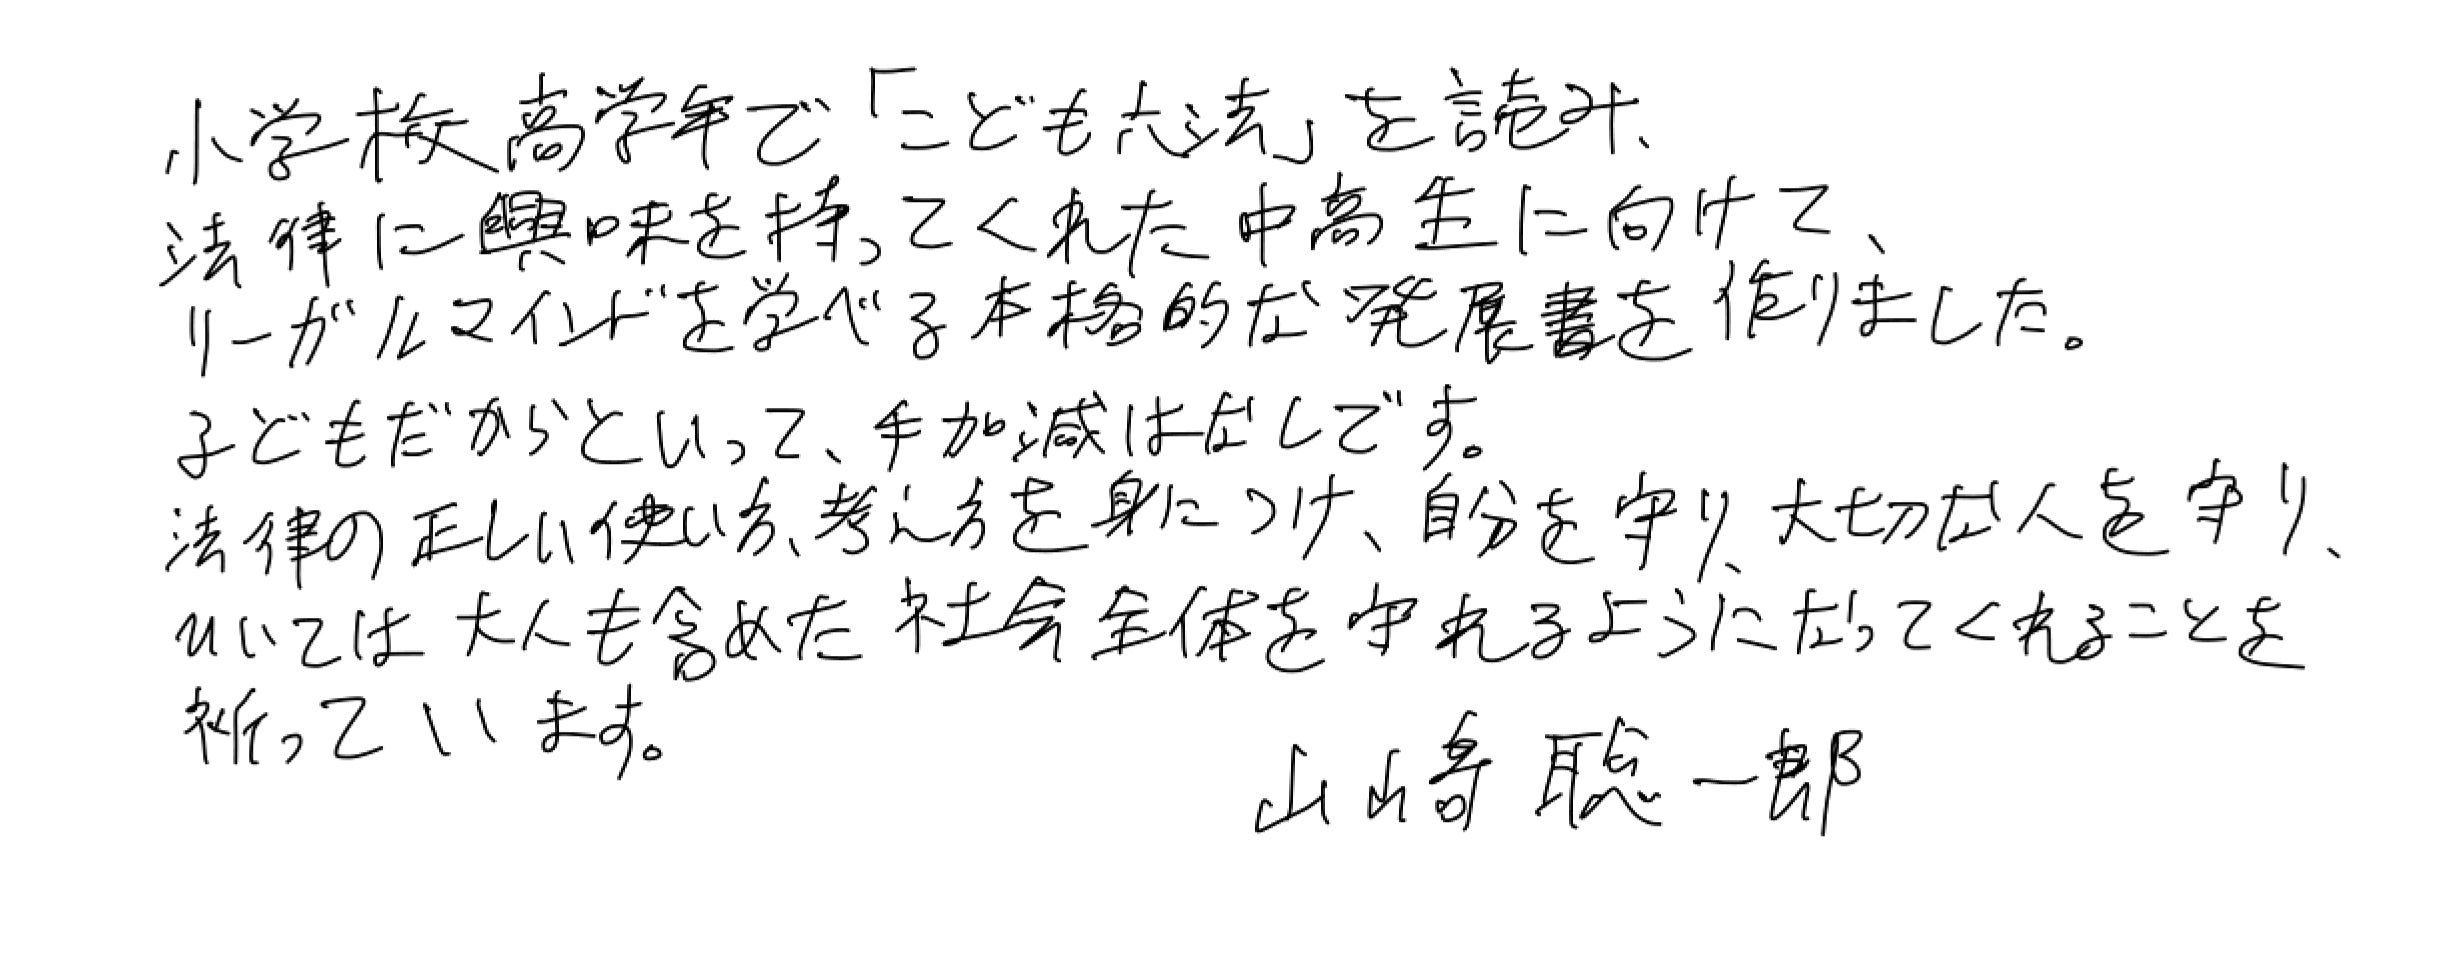 小学校高学年で「こども六法」を読み、
法律に興味を持ってくれた中高生に向けて、
リーガルマインドを学べる本格的な発展書を作りました。
子どもだからといって、手加減はなしです。
法律の正しい使い方、考え方を身につけ、自分を守り、大切な人を守り、
ひいては大人も含めた社会全体を守れるようになってくれることを
祈っています。
山﨑聡一郎